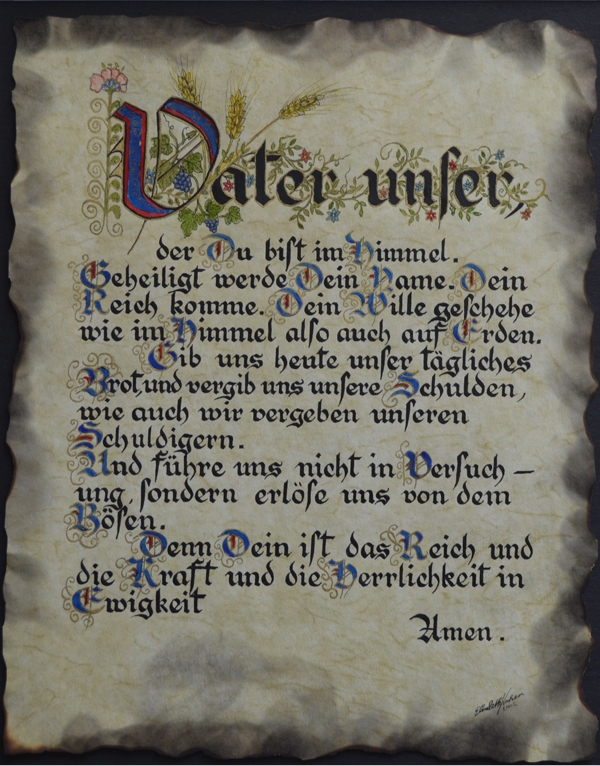 Vater unser,
der Du bist im Himmel.
Geheiligt werde Dein Name. Dein
Reich komme. Dein Wille geschehe
wie im Himmel also auch auf Erden.
Gib uns heute unser tägliches
Brot, und vergib uns unsere Schulden,
wie auch wir vergeben unseren
Schuldigern.
Und führe uns nicht in Versuch –
ung, sondern erlöse uns von dem
Bösen.
Denn Dein ist das Reich und
die Kraft und die Herrlichkeit in
Ewigkeit
Amen.